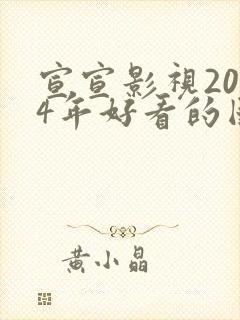 宣宣影視20
4年好看的
黄小晶